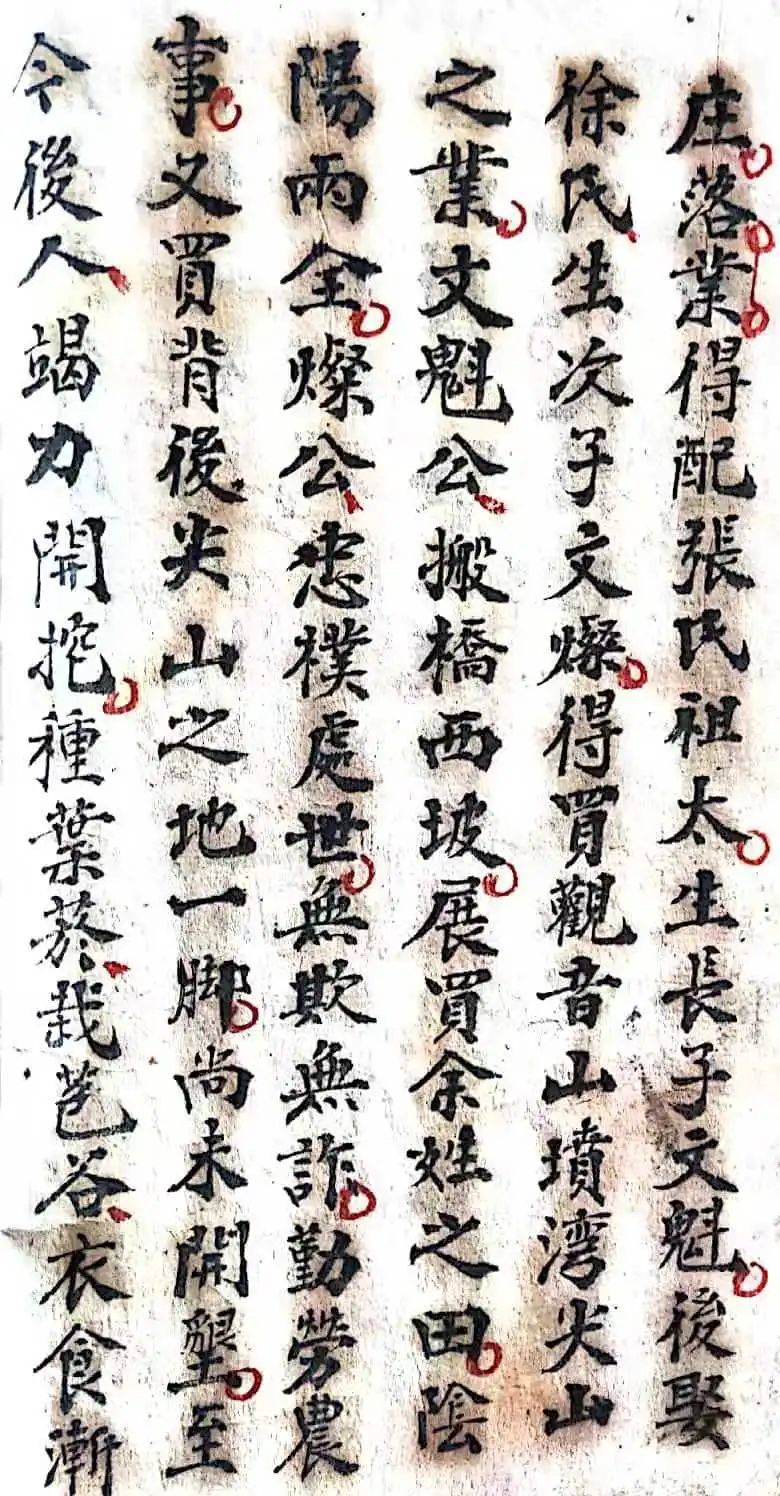 庄落業得配張氏祖太生長子文魁後娶
徐氏生次子文燦得買觀音山墳湾尖山
之業文魁公搬橋西坡展買余姓之田陰
陽兩全燦公忠樸處世無欺無詐勤劳農
事又買背後尖山之地一脚尚未開墾至
今後人竭力開挖種葉菸栽苞谷衣食漸